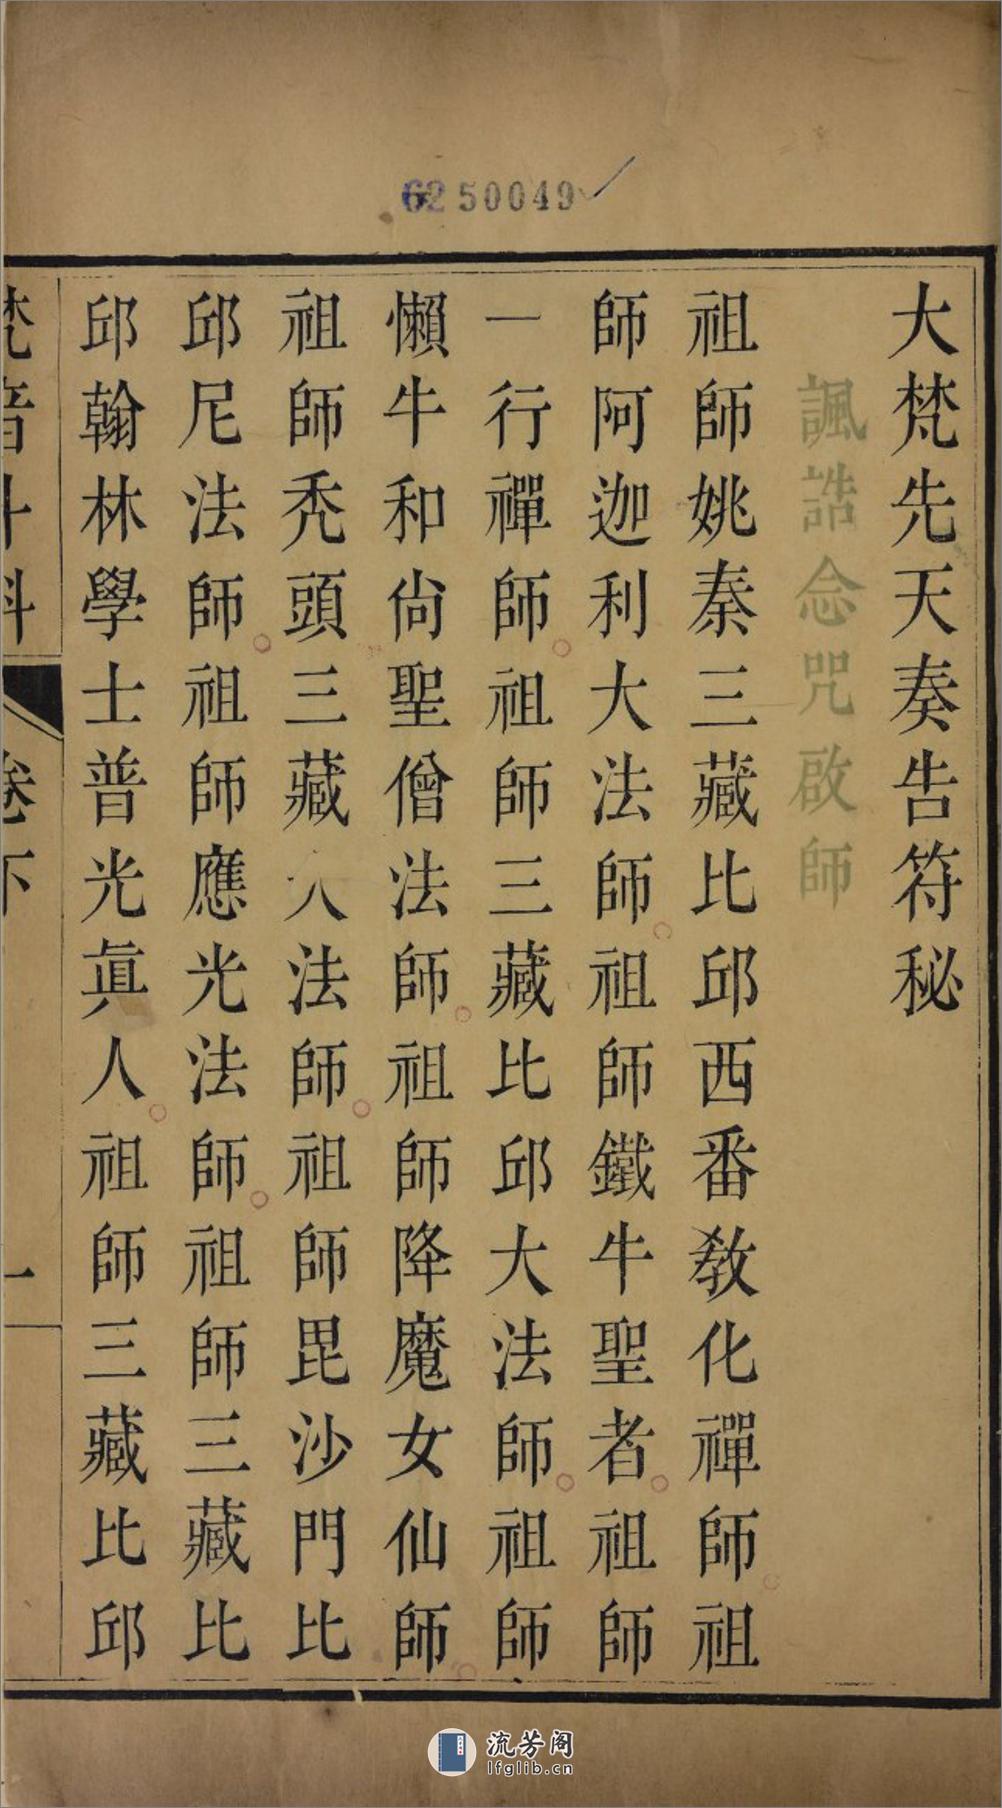 6250049
大梵先天奏告符秘
諷誥念咒啟師
祖師姚秦三藏比邱西番教化禪師祖
師阿迦利大法師祖師鐵牛聖者祖師
一行禪師祖師三藏比邱大法師祖師
懶牛和尙聖僧法師祖師降魔女仙師
祖師秃頭三藏大法師祖師毘沙門比
邱尼法師祖師應光法師祖師三藏比
邱翰林學士普光眞人祖師三藏比邱
梵音斗科 卷下 一
流芳阁
lfglib.cn